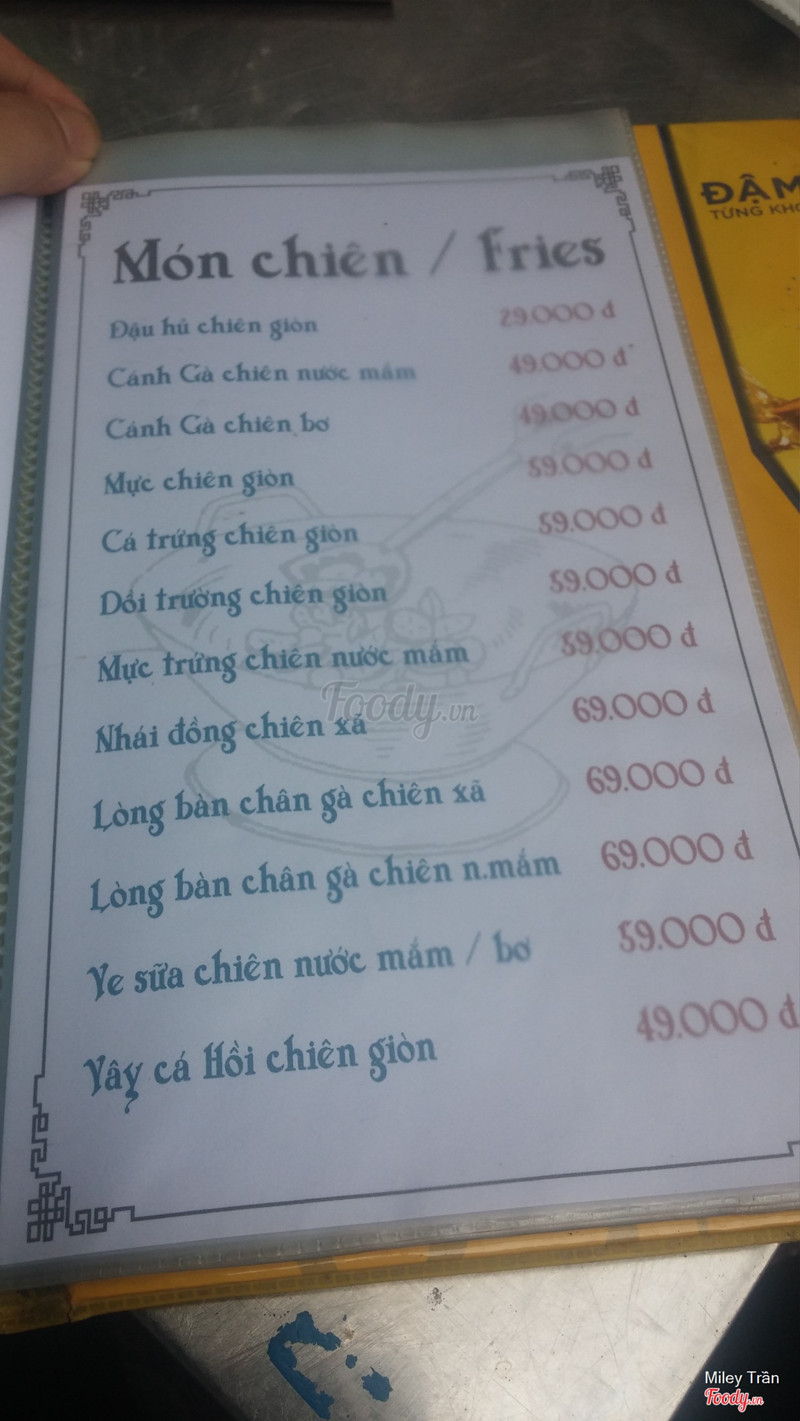 ĐẬM
TỪNG KHO
Món chiên / Fries
Đậu hủ chiên giòn 29.000 đ
Cánh Gà chiên nước mắm 49.000 đ
Cánh Gà chiên bơ 49.000 đ
Mực chiên giòn 59.000 đ
Cá trứng chiên giòn 59.000 đ
Dồi trường chiên giòn 59.000 đ
Mực trứng chiên nước mắm 59.000 đ
Nhái đồng chiên xả 69.000 đ
Lòng bàn chân gà chiên xả 69.000 đ
Lòng bàn chân gà chiên n.mắm 69.000 đ
Ve sữa chiên nước mắm / bơ 59.000 đ
Vây cá Hồi chiên giòn 49.000 đ
Foody.vn
Miley Trần
Foody.vn